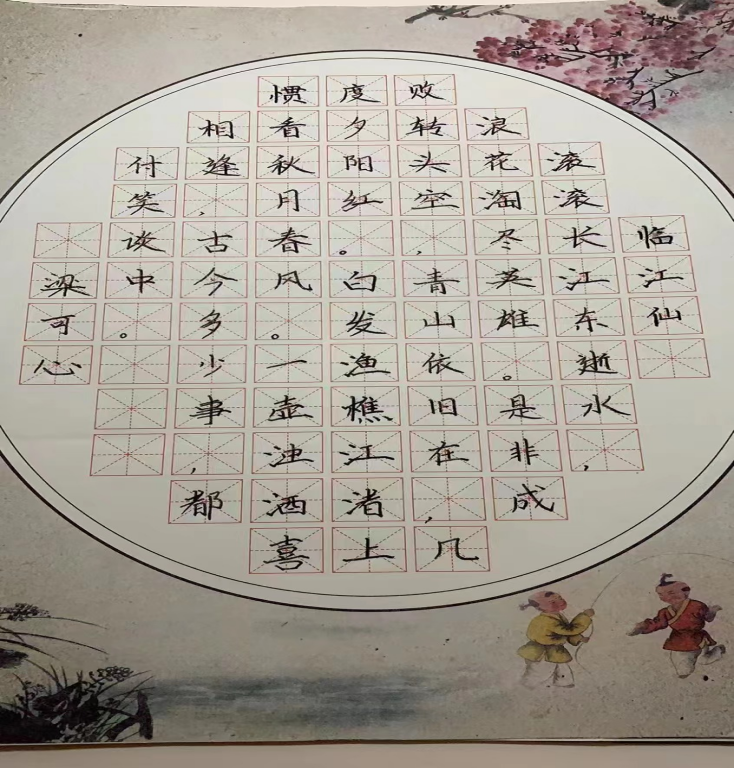 临江仙
滚滚长江东逝水,
浪花淘尽英雄。是非成
败转头空,青山依旧在,几
度夕阳红。白发渔樵江渚上
惯看秋月春风。一壶浊酒喜
相逢,古今多少事,都
付笑谈中。
梁可心